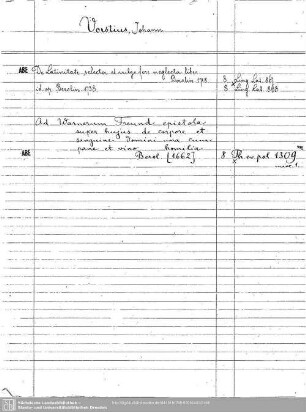 Vorstius, Johann
ABE De Latinitate selecta et vulgo fere neglecta libri
Berolin 178 8 Ling Lat. 867
id. op. Berolin 1738 8 Ling Lat. 868
Ad Warnerum Freund epistola
super hujus de corpore et
sanguine Domini una cum
pane et vino homilia
ABE Berol. [1662] 8 Th. ev. pol 1309 m
misc. 1.
Sächsische Landesbibliothek -
Staats- und Universitätsbibliothek Dresden